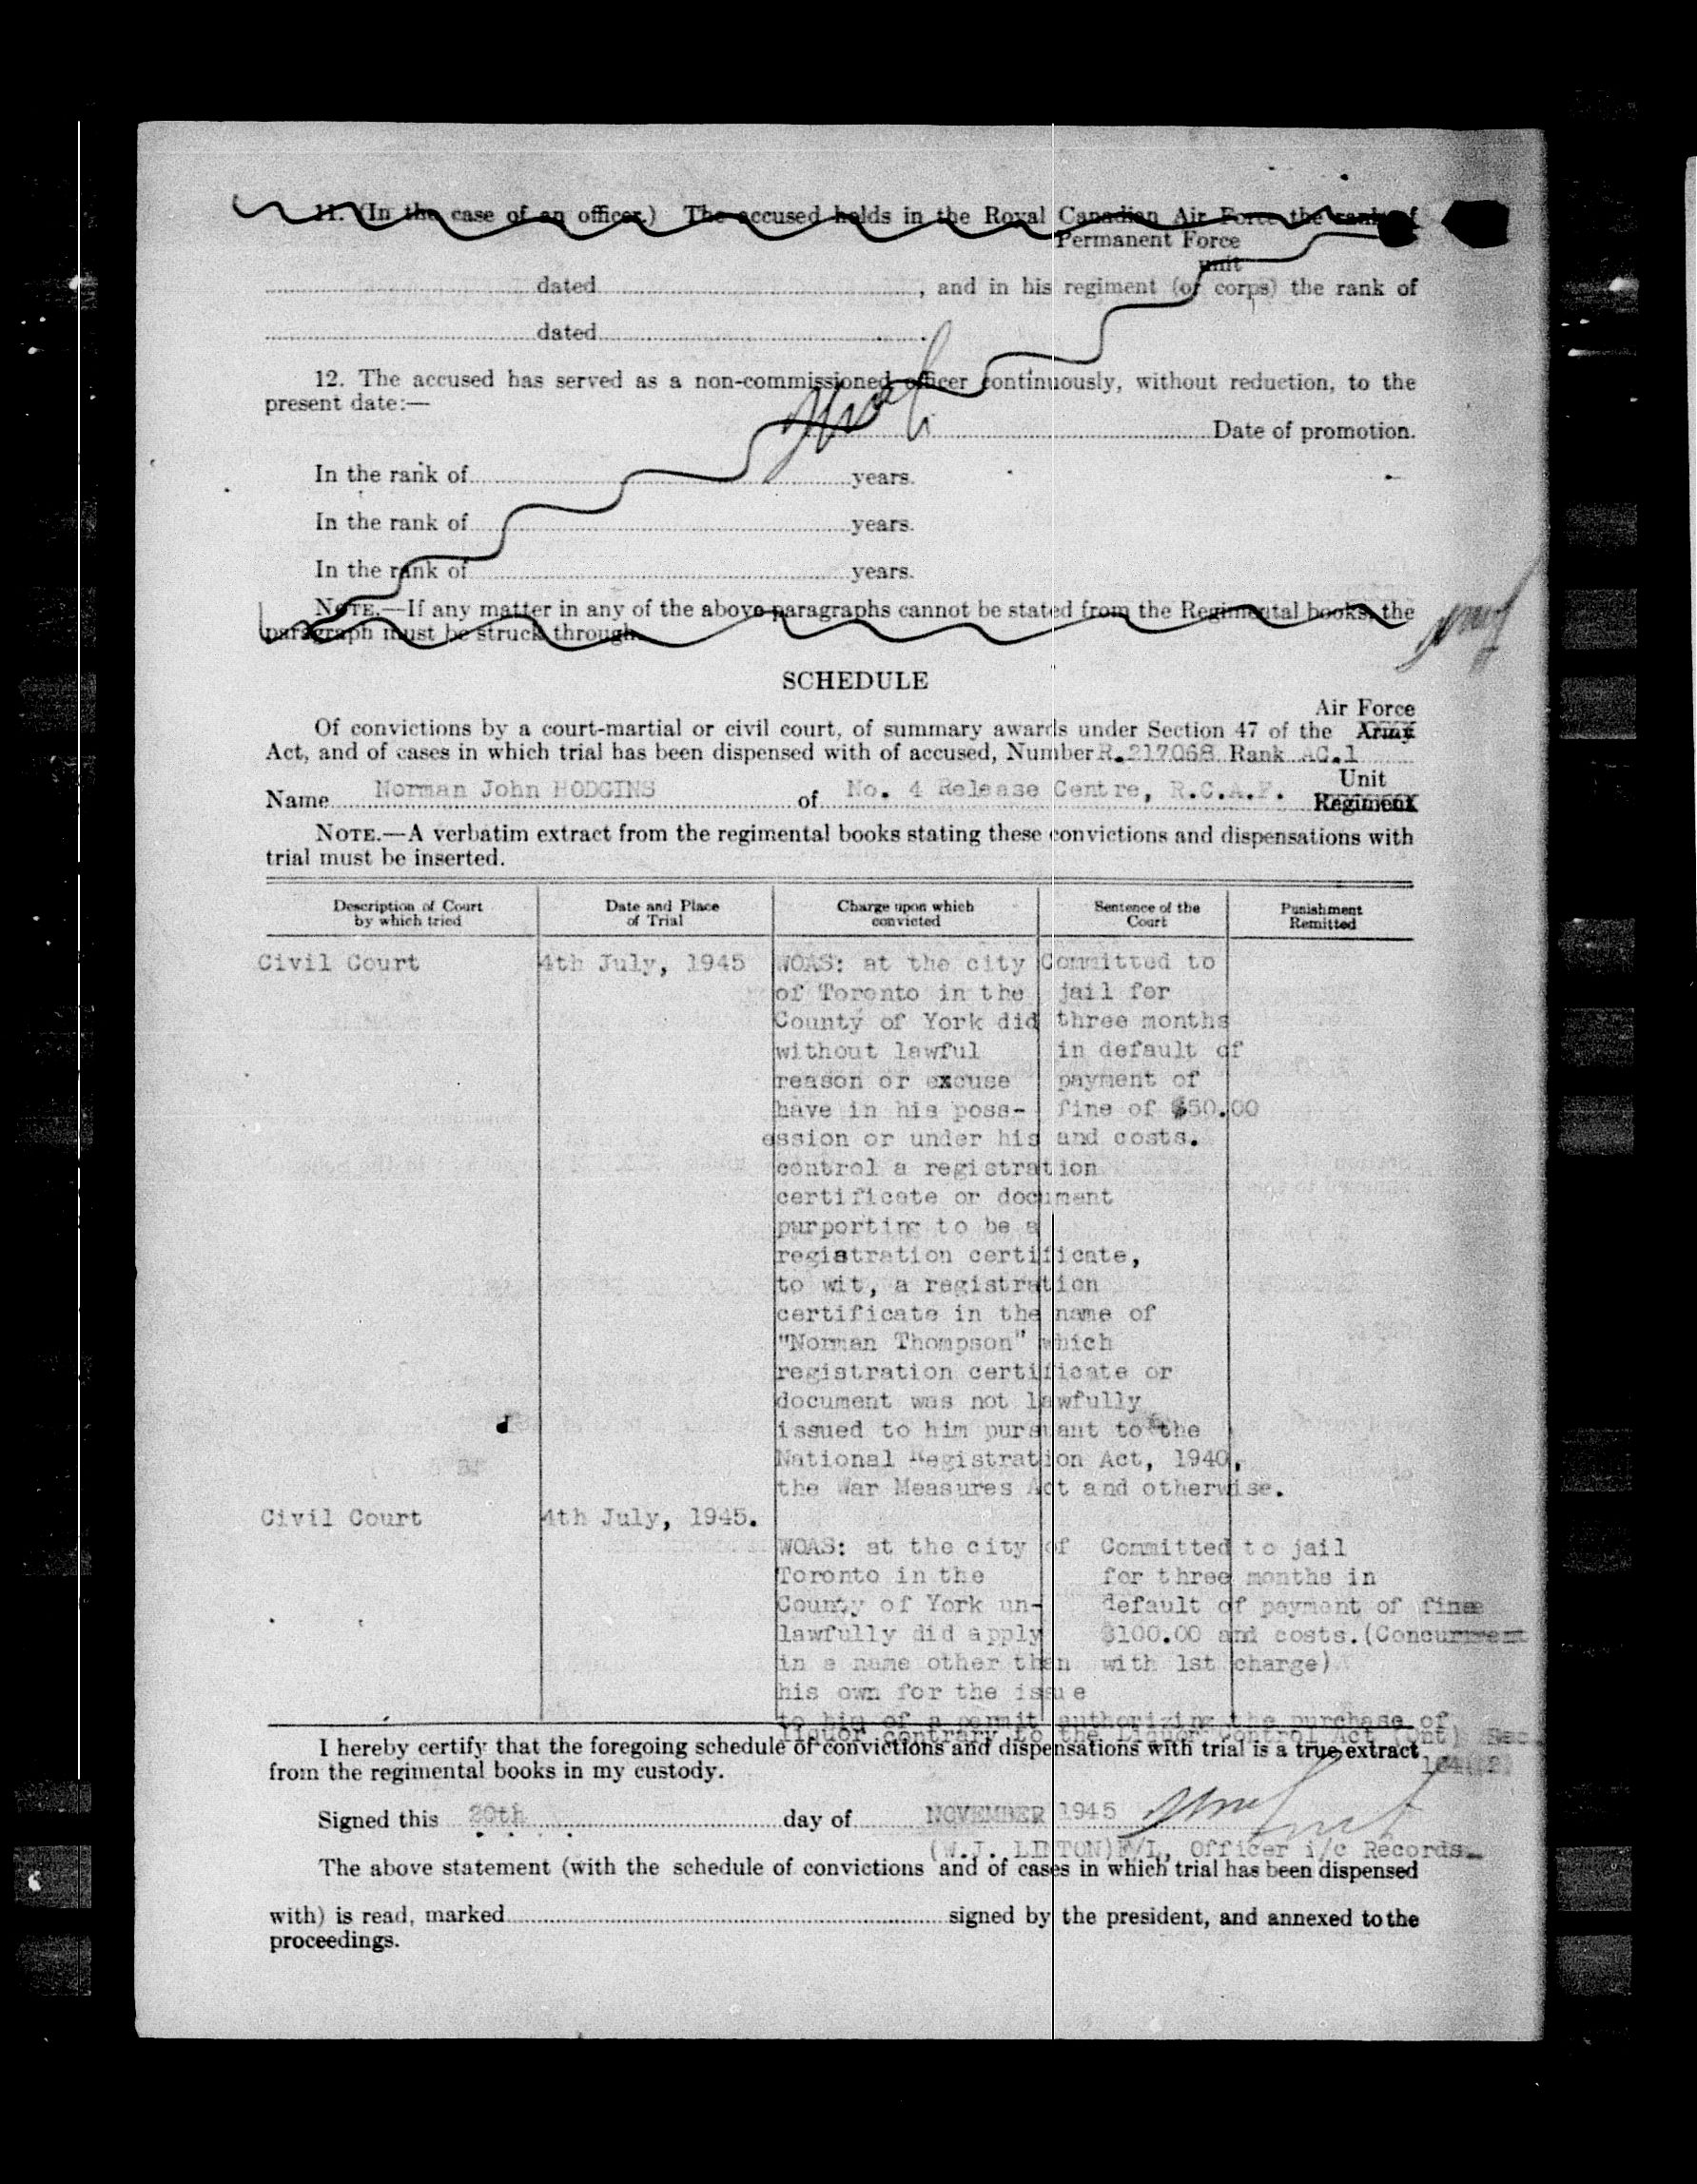 11. (In the case of an officer.) The accused holds in the Royal Canadian Air Force the rank of
Permanent Force
unit
dated , and in his regiment (or corps) the rank of
dated
12. The accused has served as a non-commissioned officer continuously, without reduction, to the
present date:—
Date of promotion.
In the rank of years.
In the rank of years.
In the rank of years.
NOTE.—If any matter in any of the above paragraphs cannot be stated from the Regimental books, the
paragraph must be struck through.
SCHEDULE
Air Force
Of convictions by a court-martial or civil court, of summary awards under Section 47 of the Army
Act, and of cases in which trial has been dispensed with of accused, Number R.217068 Rank AC.1
Unit
Name Norman John HODGINS of No. 4 Release Centre, R.C.A.F. Regiment
NOTE.—A verbatim extract from the regimental books stating these convictions and dispensations with
trial must be inserted.
Description of Court Date and Place Charge upon which Sentence of the Punishment
by which tried of Trial convicted Court Remitted
Civil Court 4th July, 1945 WOAS: at the city Committed to
of Toronto in the jail for
County of York did three months
without lawful in default of
reason or excuse payment of
have in his poss- fine of $50.00
ession or under his and costs.
control a registration
certificate or document
purporting to be a
registration certificate,
to wit, a registration
certificate in the name of
"Norman Thompson" which
registration certificate or
document was not lawfully
issued to him pursuant to the
National Registration Act, 1940,
the War Measures Act and otherwise.
Civil Court 4th July, 1945.
WOAS: at the city of Committed to jail
Toronto in the for three months in
County of York un- default of payment of fine
lawfully did apply $100.00 and costs.(Concurrent
in a name other than with 1st charge)
his own for the issue
to him of a permit authorizing the purchase of
liquor contrary to the Liquor Control Act (Ont) Sec.
I hereby certify that the foregoing schedule of convictions and dispensations with trial is a true extract
from the regimental books in my custody.
Signed this 20th day of NOVEMBER 1945
(W.J. LINTON)F/L, Officer i/c Records.
The above statement (with the schedule of convictions and of cases in which trial has been dispensed
with) is read, marked signed by the president, and annexed to the
proceedings.